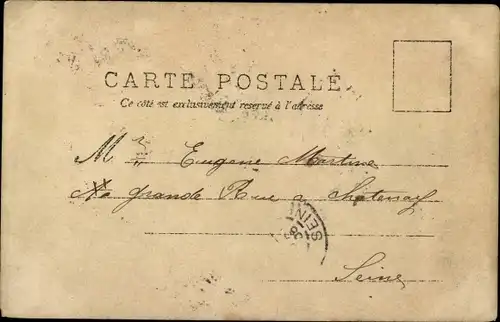 CARTE POSTALE
Ce côté est exclusivement reservé à l'adresse
M Eugene Martine
grande Rue a Chatenay
Seine
SEINE